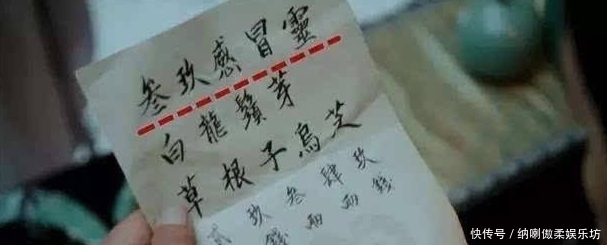 叁玖感冒靈
白龍鬚芽
草根子烏芝
玖叁肆玖
錢两两錢
快传号/纳喇傲柔娱乐坊